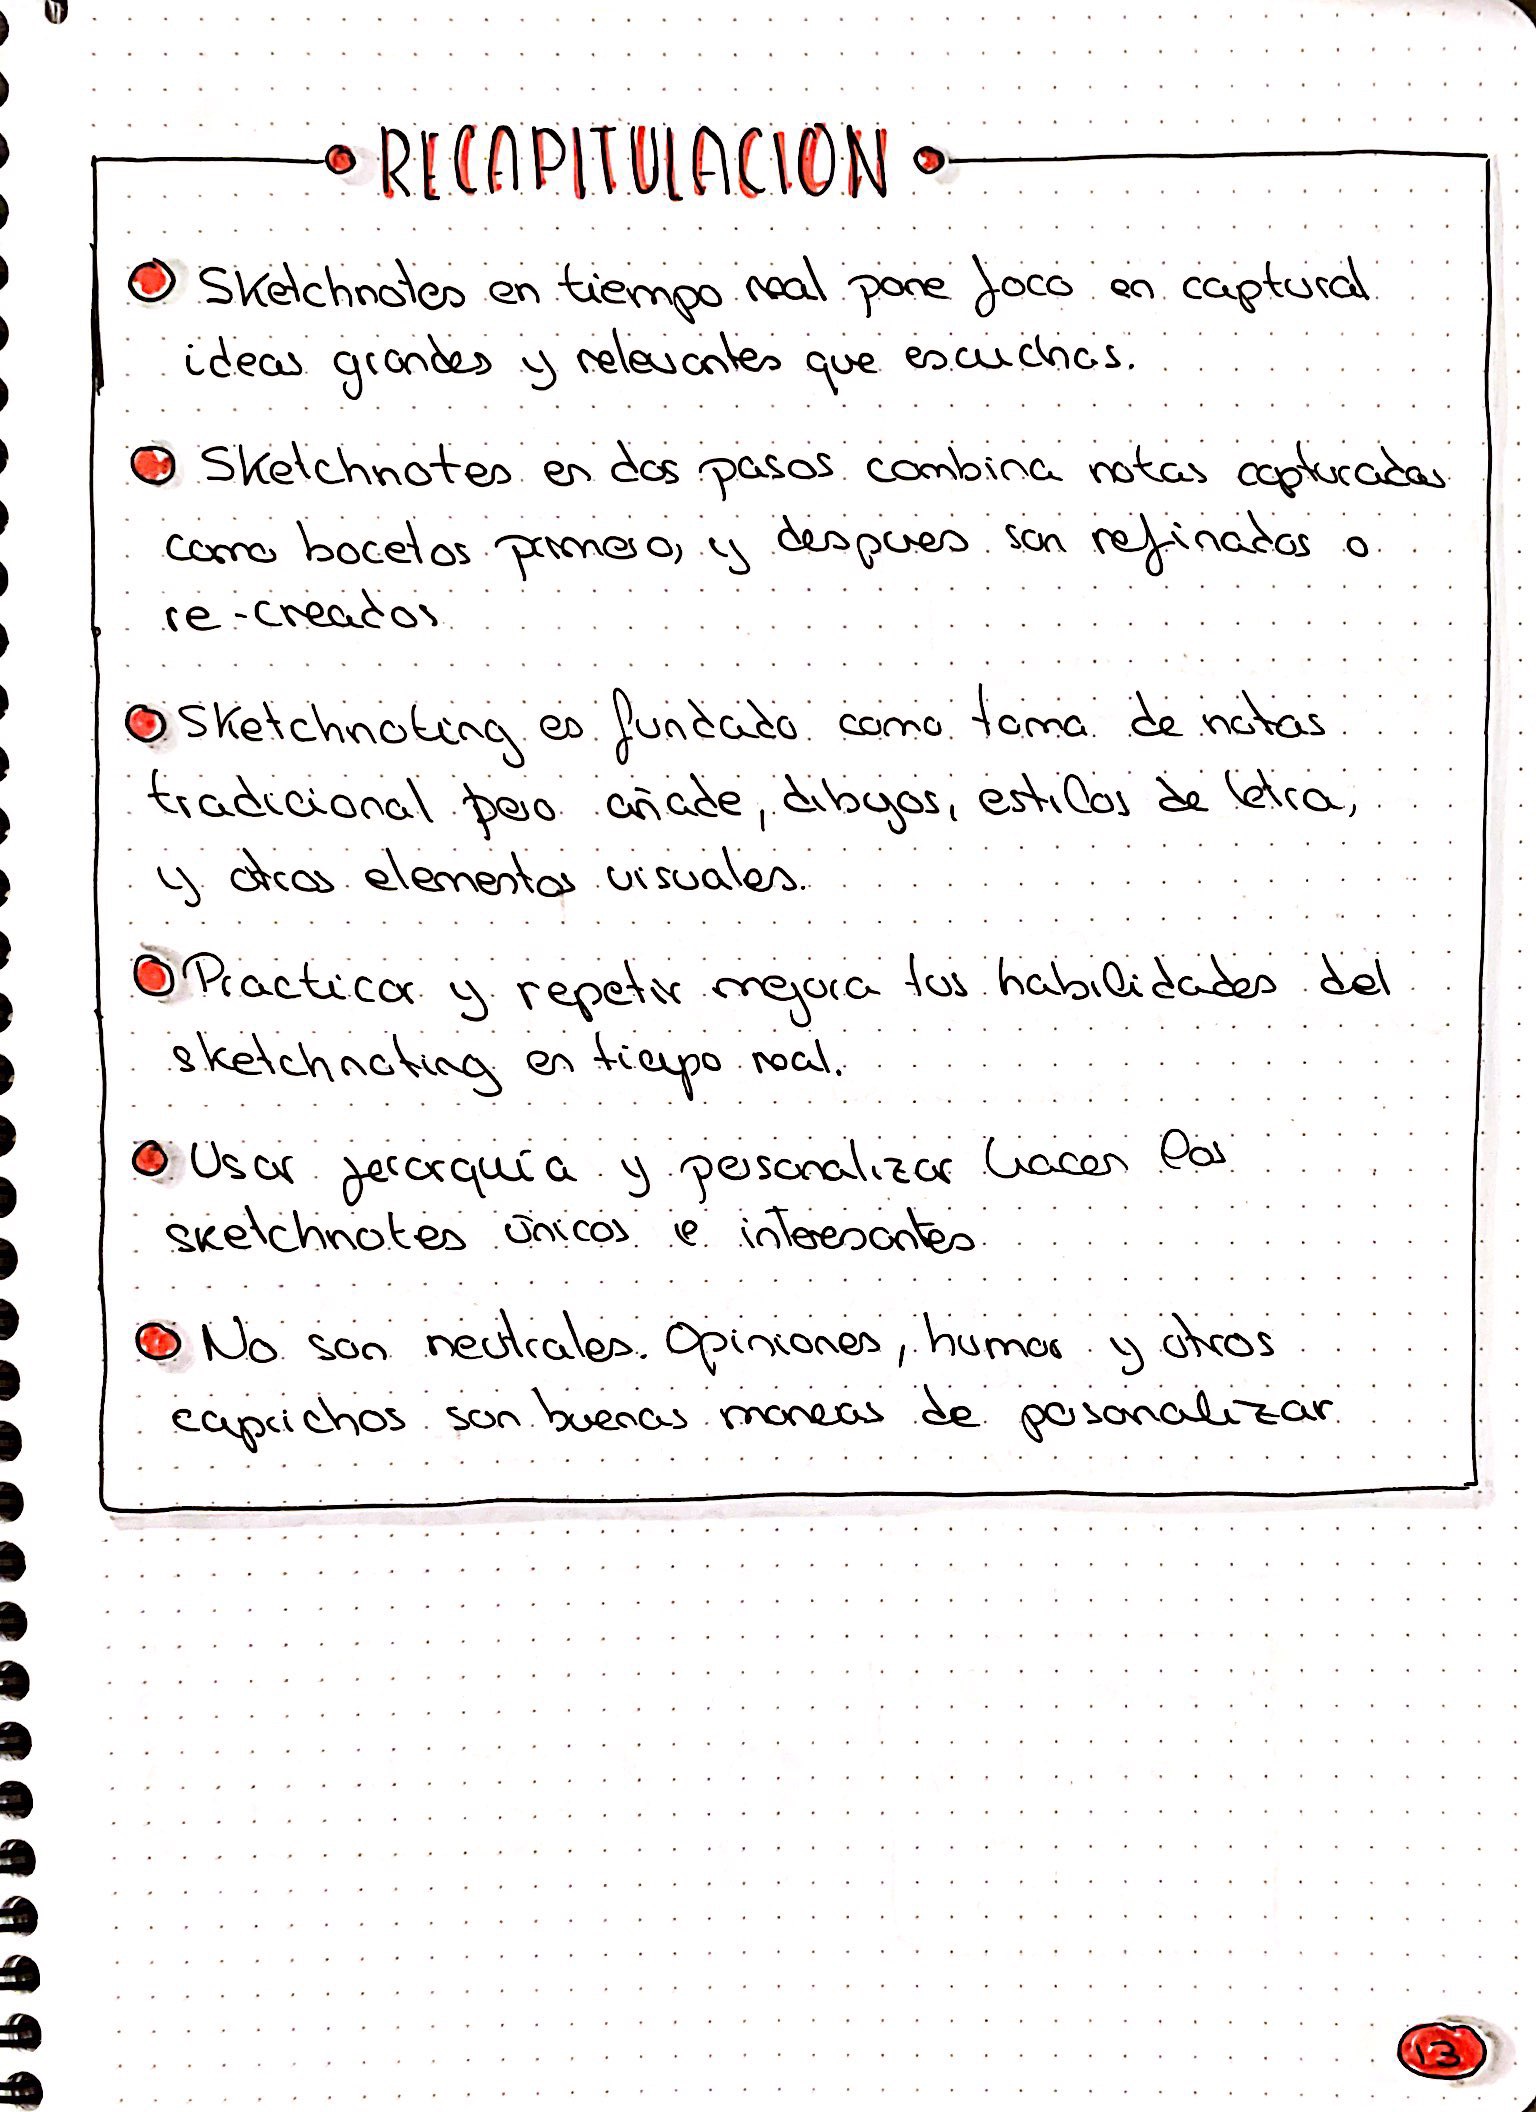 RECAPITULACION
Sketchnotes en tiempo real pone foco en captural
ideas grandes y relevantes que escuchas.
Sketchnotes en dos pasos combina notas capturadas
como bocetos primero, y despues son refinados o
re-creados
Sketchnoting es fundado como toma de notas
tradicional pero añade, dibujos, estilos de letra,
y otros elementos visuales.
Practicar y repetir mejora tus habilidades del
sketchnoting en tiempo real.
Usar jerarquía y personalizar hacen los
sketchnotes únicos e interesantes
No son neutrales. Opiniones, humor y otros
caprichos son buenas maneras de personalizar
13